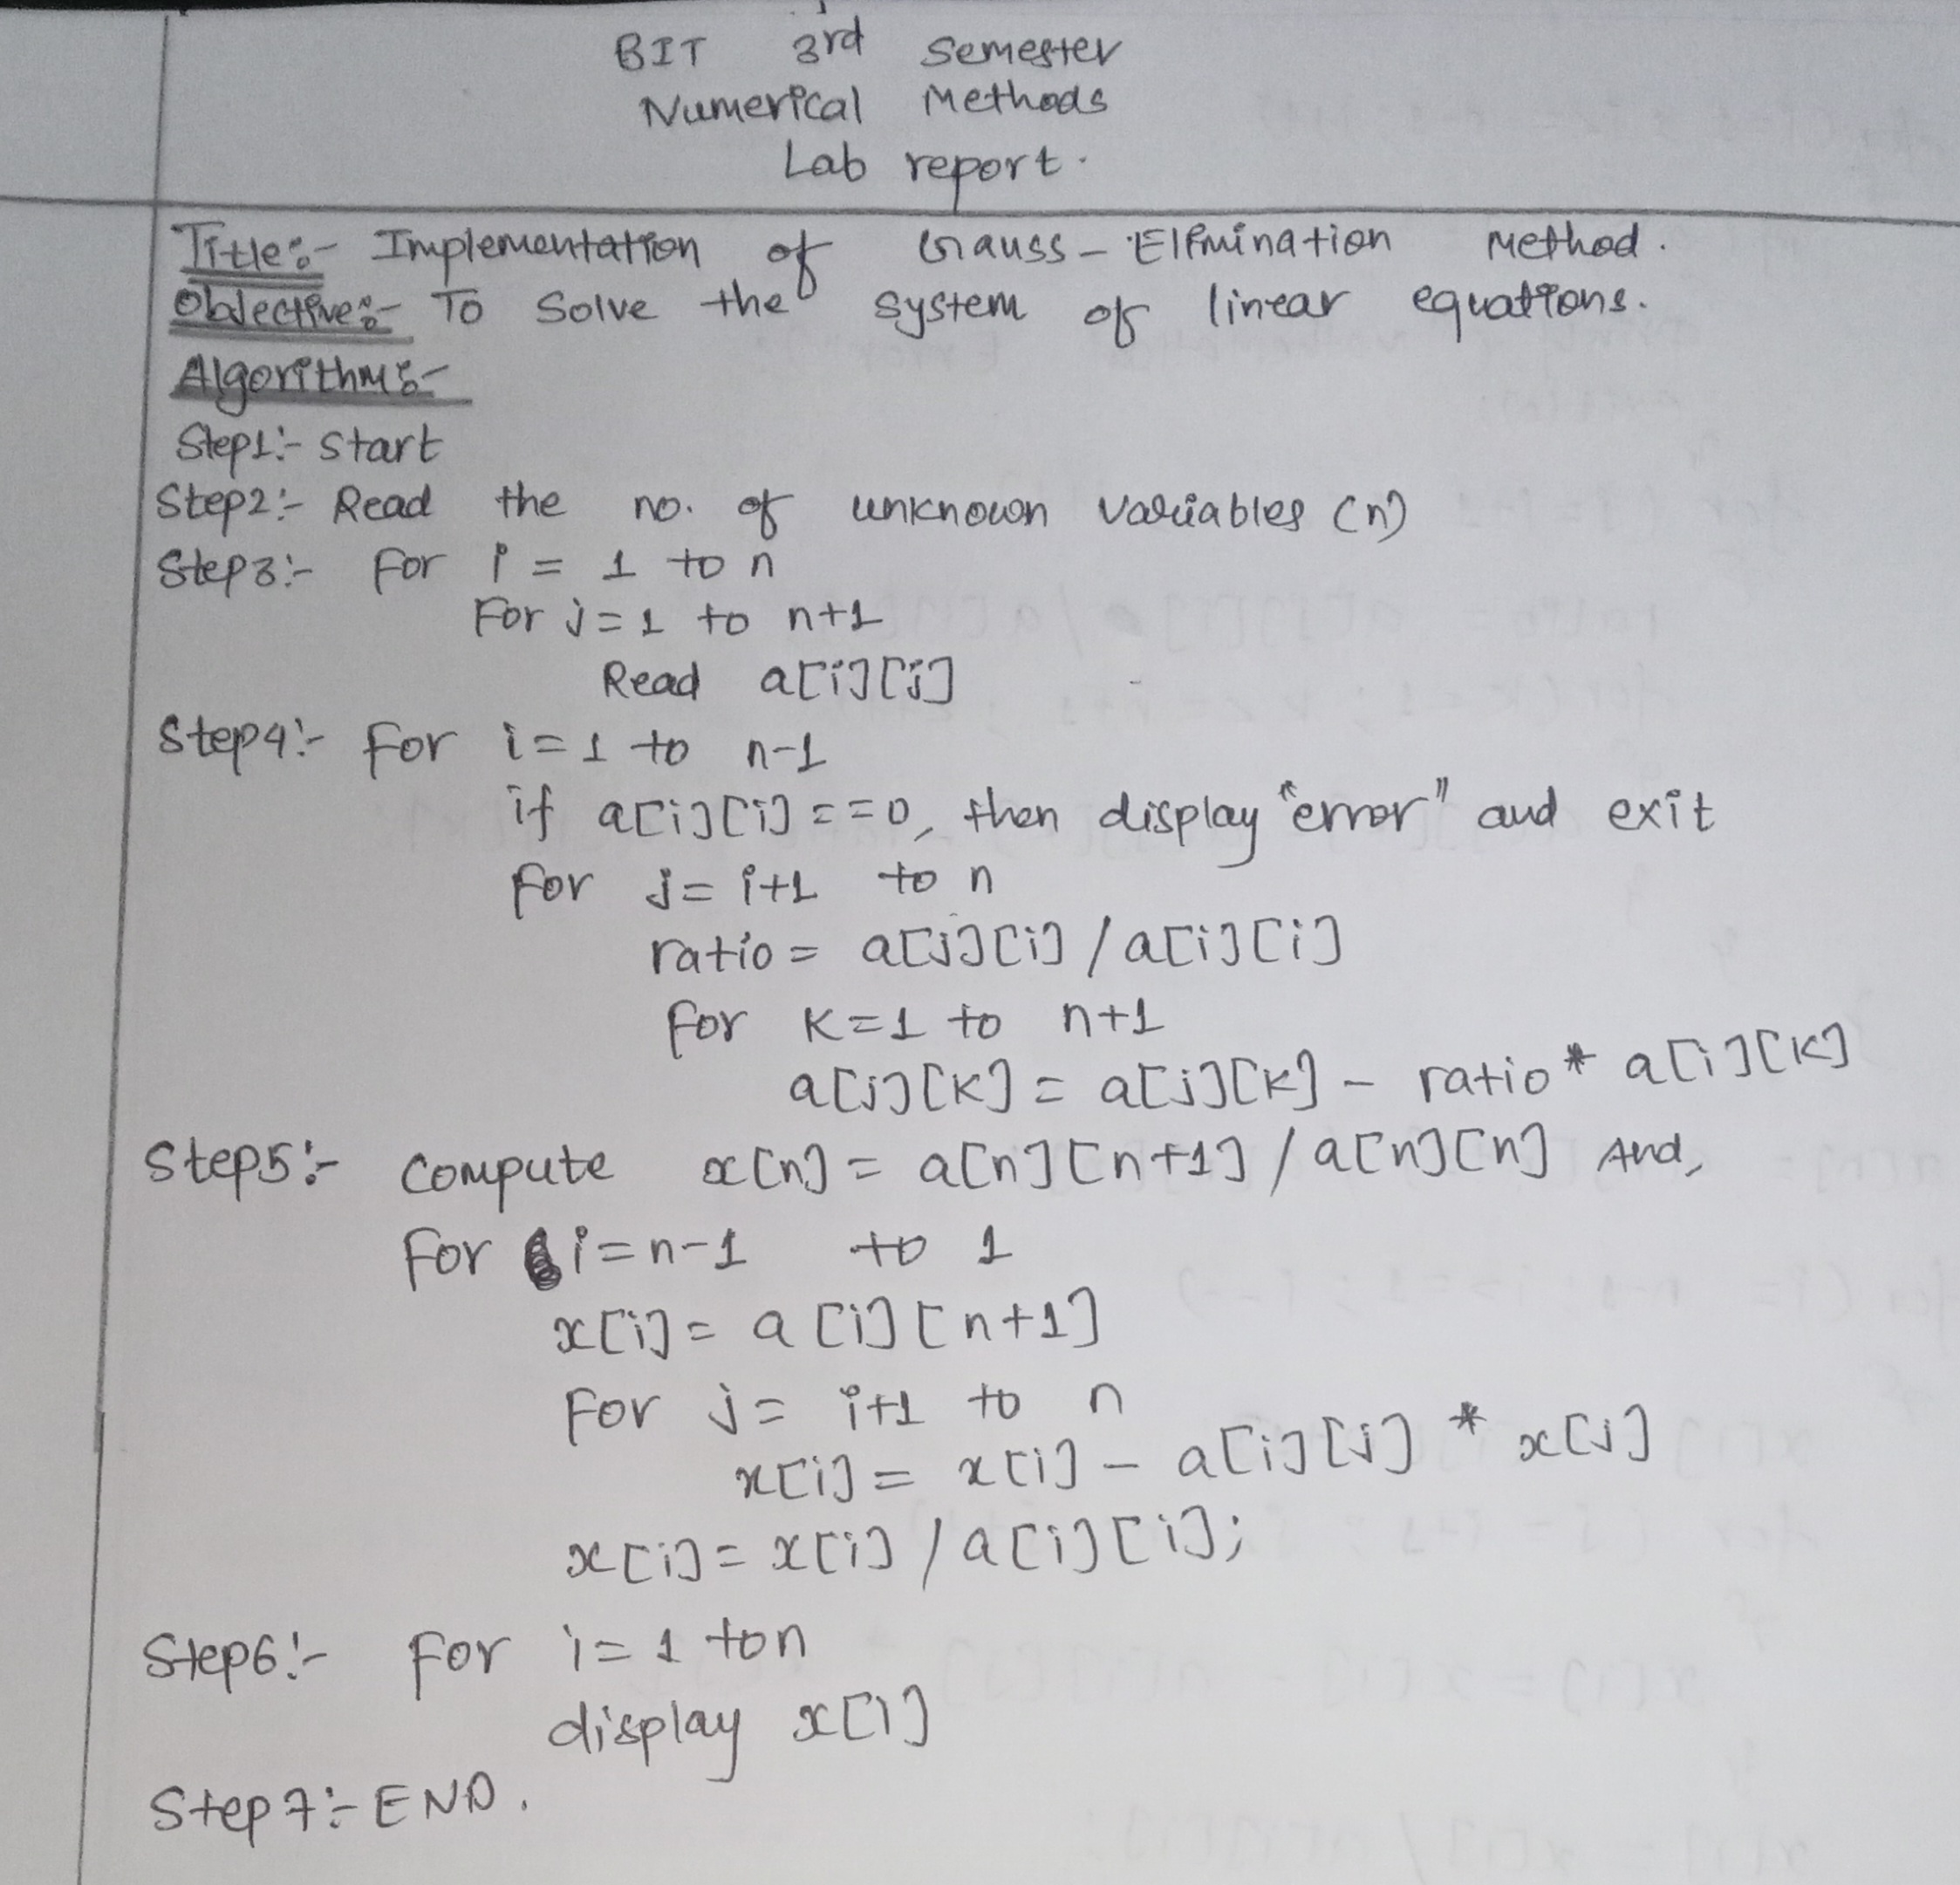 BIT 3rd Semester
Numerical Methods
Lab report.
Title:- Implementation of Gauss-Elimination Method.
Objective:- To Solve the system of linear equations.
Algorithm:-
Step1:- Start
Step2:- Read the no. of unknown variables (n)
Step3:- For i = 1 to n
For j=1 to n+1
Read a[i][j]
Step4:- For i=1 to n-1
if a[i][i]==0, then display "error" and exit
For j= i+1 to n
ratio = a[j][i] / a[i][i]
For K=1 to n+1
a[j][K] = a[j][K] - ratio * a[i][K]
Step5:- Compute x[n] = a[n][n+1] / a[n][n] And,
For i=n-1 to 1
x[i] = a[i][n+1]
For j= i+1 to n
x[i] = x[i] - a[i][j] * x[j]
x[i] = x[i] / a[i][i];
Step6:- For i=1 to n
display x[i]
Step7:- END.